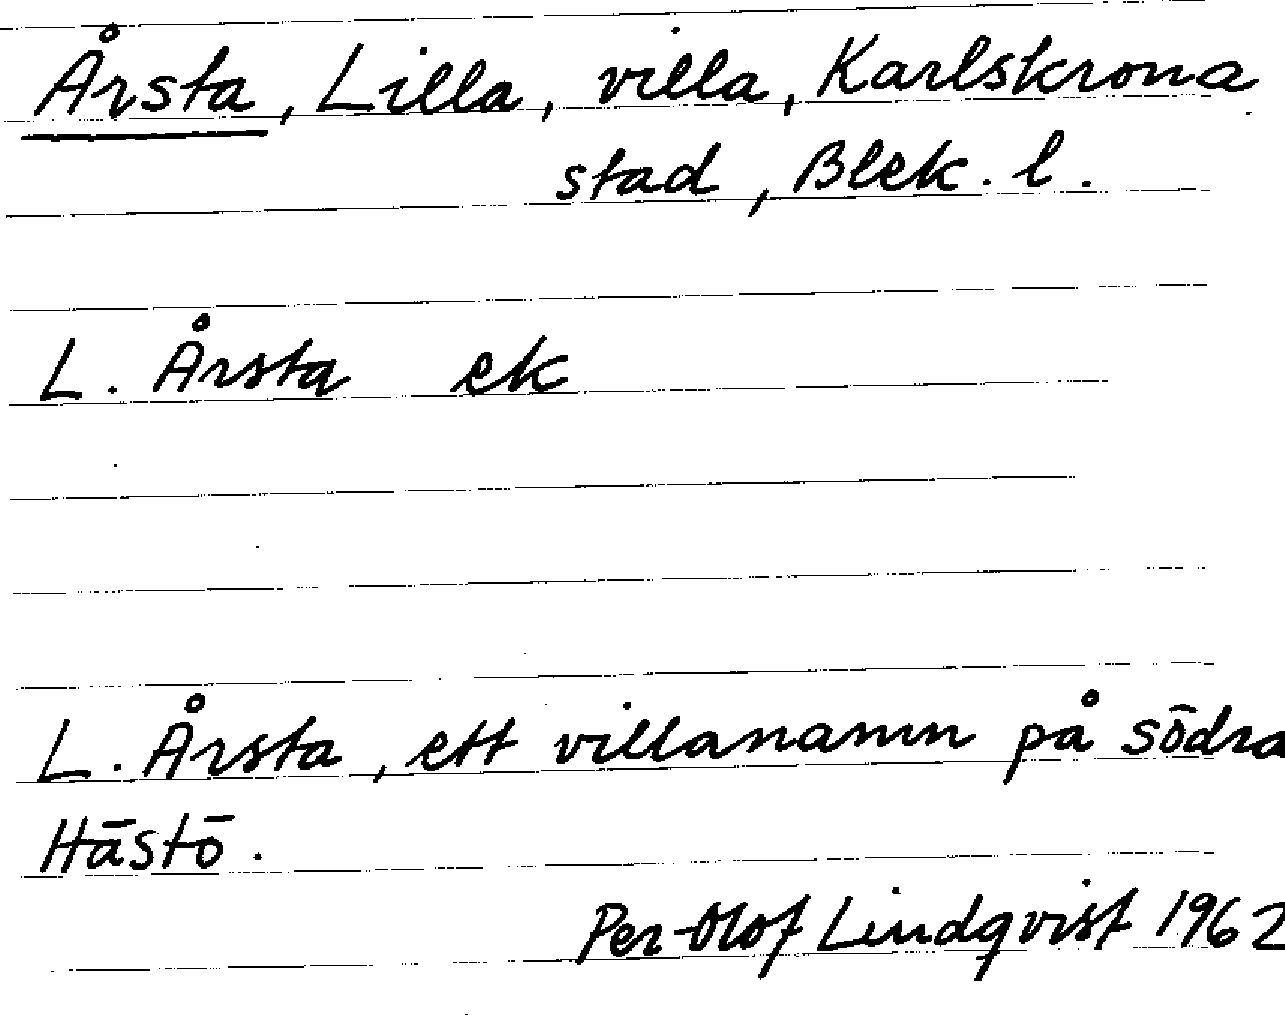 Årsta, Lilla, villa, Karlskrona
stad, Blek. l.
L. Årsta ek
L. Årsta, ett villanamn på södra
Hästö.
Per-Olof Lindqvist 1962